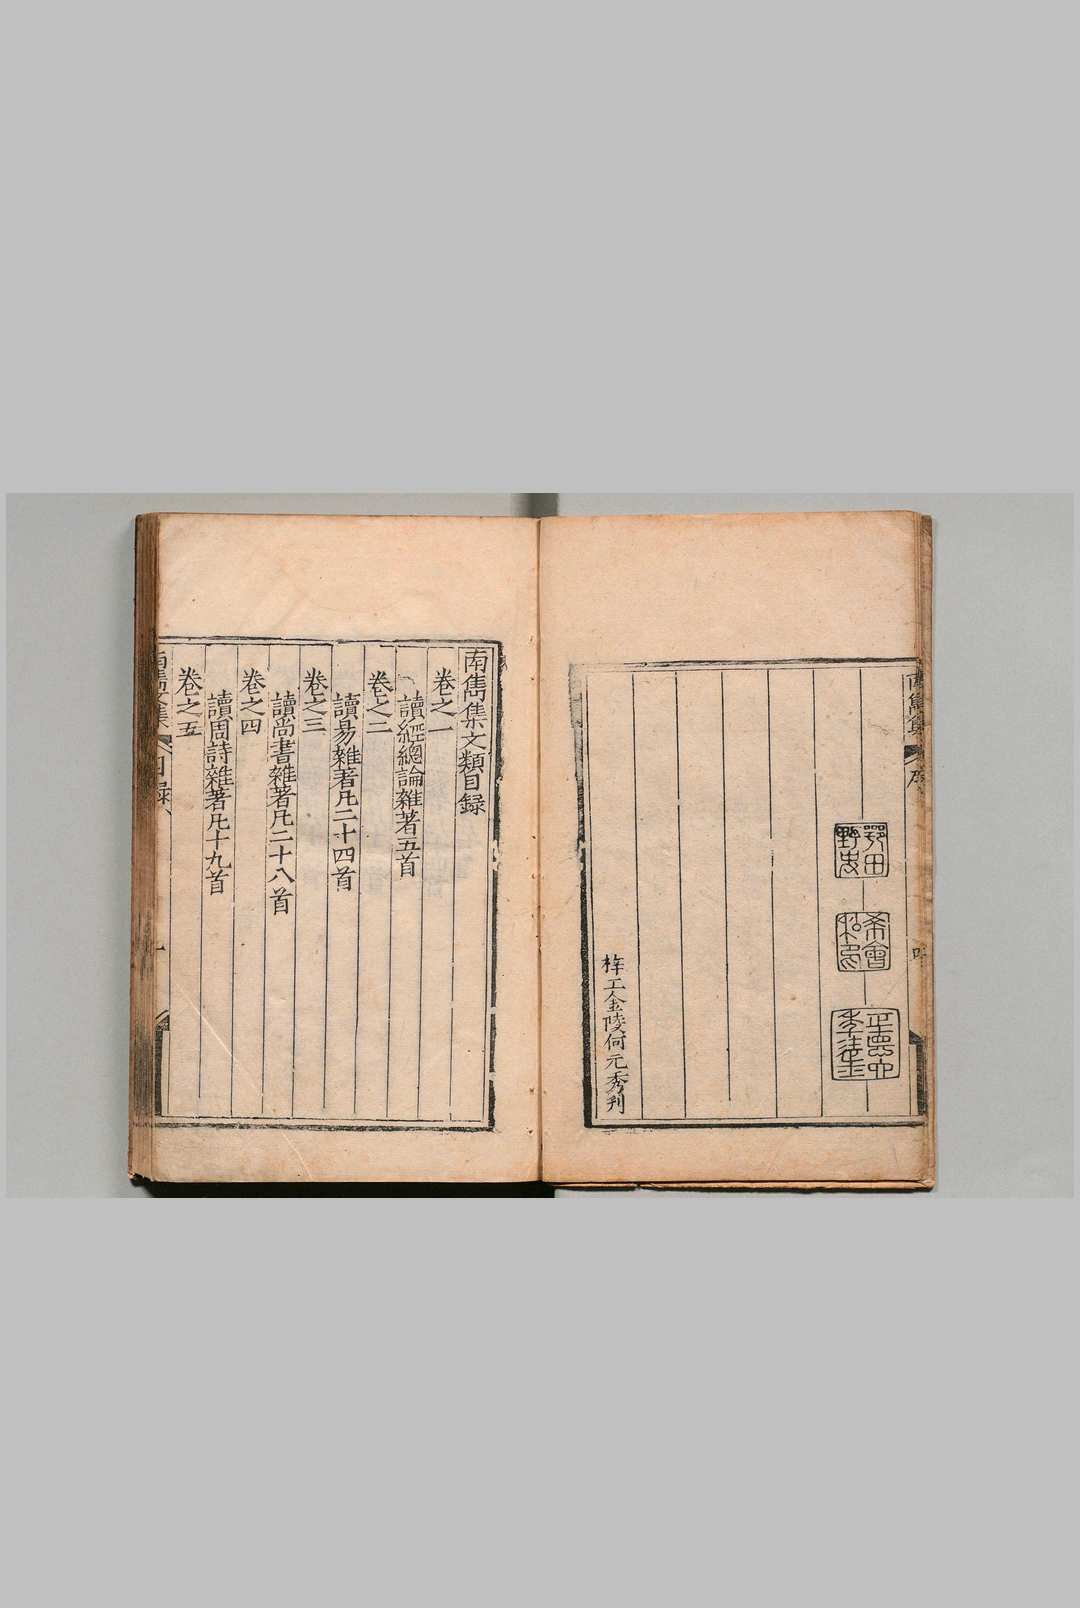 南雋集
序
鄠田
野史
希會
梓工金陵何元秀刋
南雋集文類目録
卷之一
讀經總論雜著五首
卷之二
讀易雜著凡二十四首
卷之三
讀尚書雜著凡二十八首
卷之四
讀周詩雜著凡十九首
卷之五
南雋文集
目録